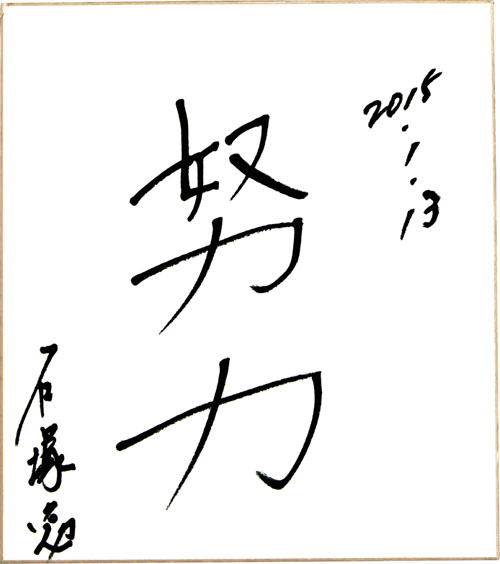 2015.1.13
努力
石塚